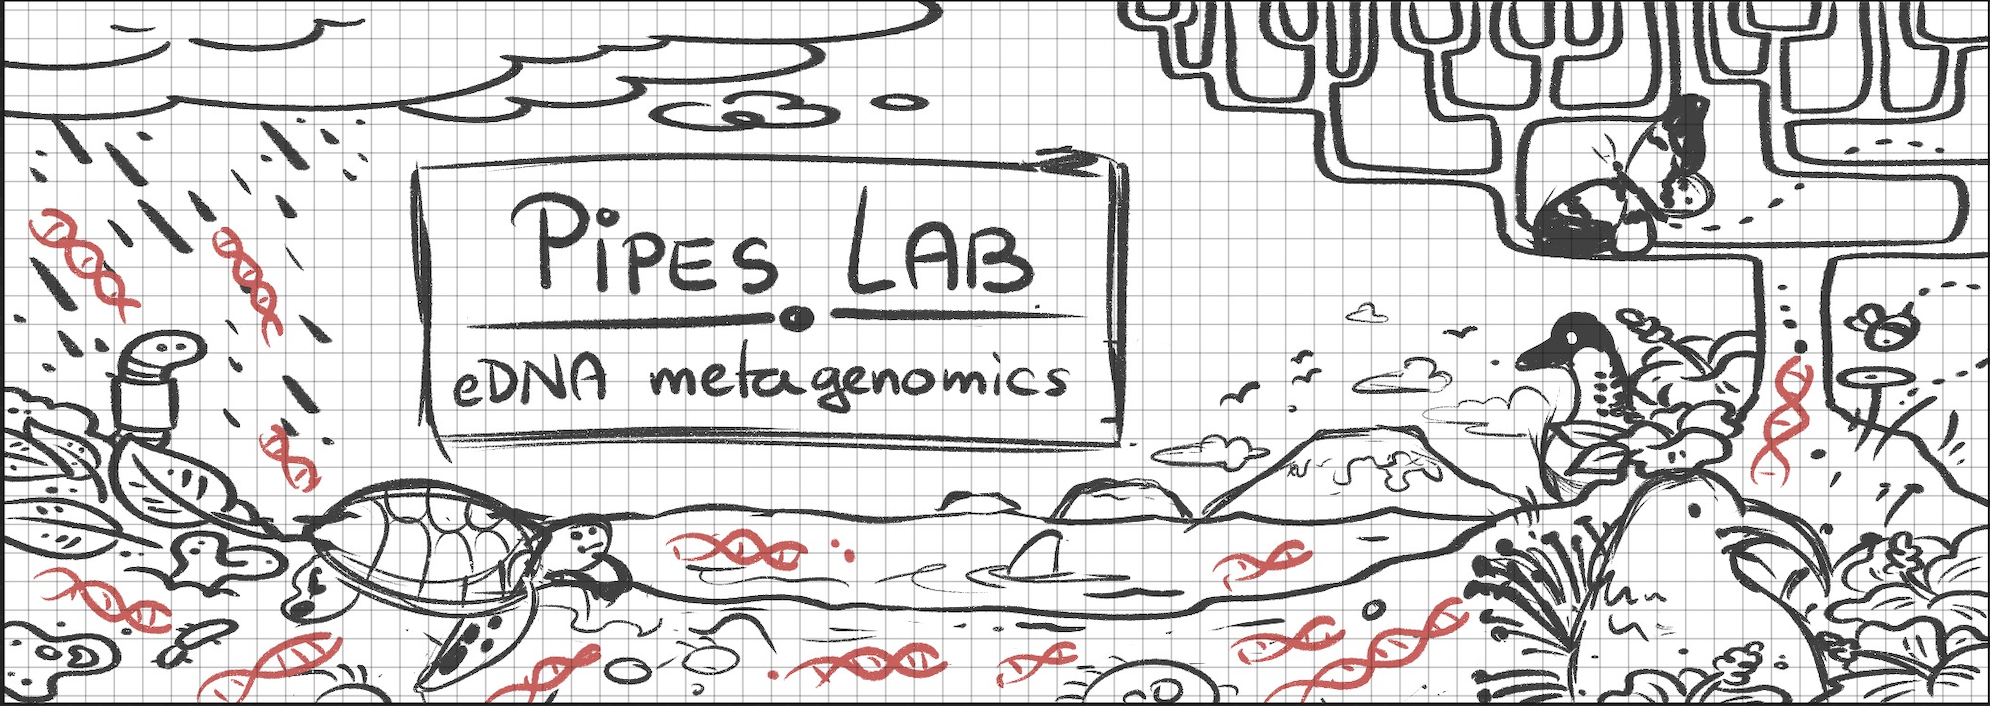 PiPES LAB
eDNA metagenomics